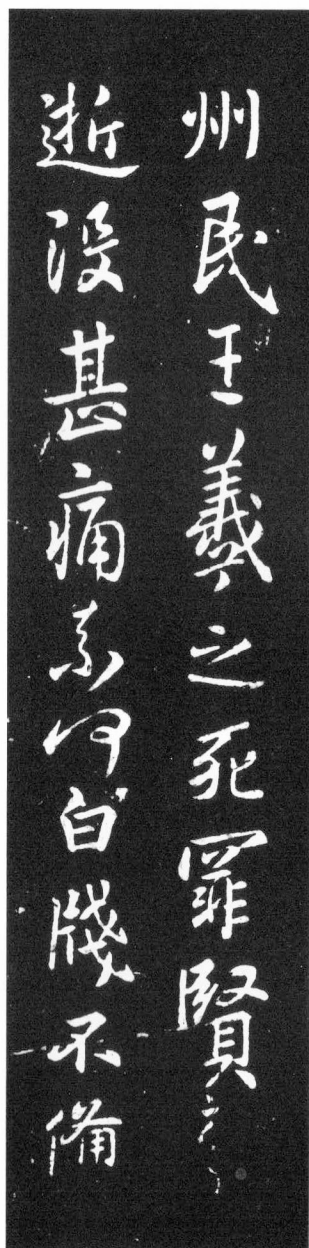 州民王羲之死罪賢
逝沒甚痛奈何白牋不備